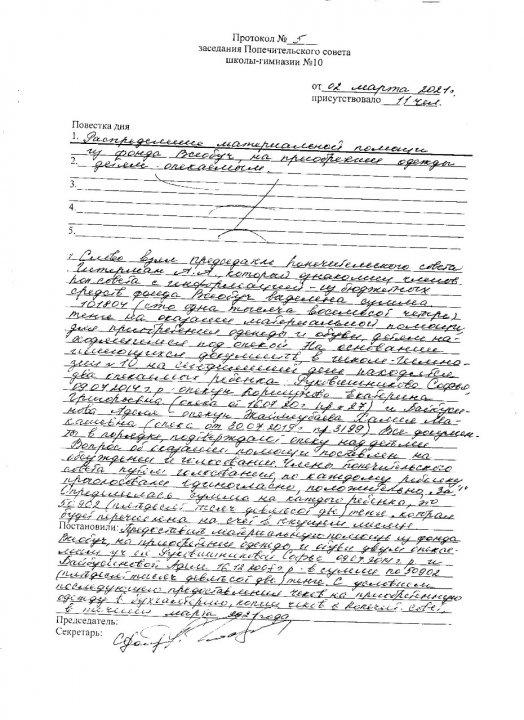 Протокол № 5
заседания Попечительского совета
школы-гимназии №10
от 02 марта 2021г.
присутствовало 11 чел.
Повестка дня
1. Распределение материальной помощи
из фонда Всеобуч, на приобретение одежды
2. детям опекаемым.
3.
4.
5.
Слово взял председатель попечительского совета
А.А., который ознакомил членов
поп.совета с информацией - из бюджетных
средств фонда Всеобуч выделена сумма
101804 (сто одна тысяча восемьсот четыре)
тенге на оказание материальной помощи
для приобретения одежды и обуви, детям на-
ходящимся под опекой. На основании
имеющихся документов в школе-гимна-
зии №10 на сегодняшний день находятся
два опекаемых ребенка. София
09.07.2014 г.р. - опекун Екатерина
Григорьевна (опека от 16.07.20г. пр. № 87) и
Адель - опекун
(опека от 30.07.2019г. пр. 3199) Все докумен-
ты в порядке, подтверждают опеку над детьми.
Вопрос об оказании помощи поставлен на
обсуждение и голосование. Члены попечительского
совета путем голосования, по каждому ребенку
проголосовали единогласно, положительно, "За"
Определилась сумма на каждого ребенка, это
50902 (пятьдесят тысяч девятьсот два) тенге, которая
будет перечислена на счет в текущем месяце.
Постановили: Предоставить материальную помощь из фонда
Всеобуч, на приобретение одежды и обуви двум опека-
емым уч-ся Софье 09.07.2014 г.р. и
Адель 16.12.2007 г.р. - в сумме по 50902
(пятьдесят тысяч девятьсот два) тенге. С условием
последующего предоставления чеков на приобретенную
одежду в бухгалтерию, копии чеков в
в течении марта 2021 года
Председатель:
Секретарь: